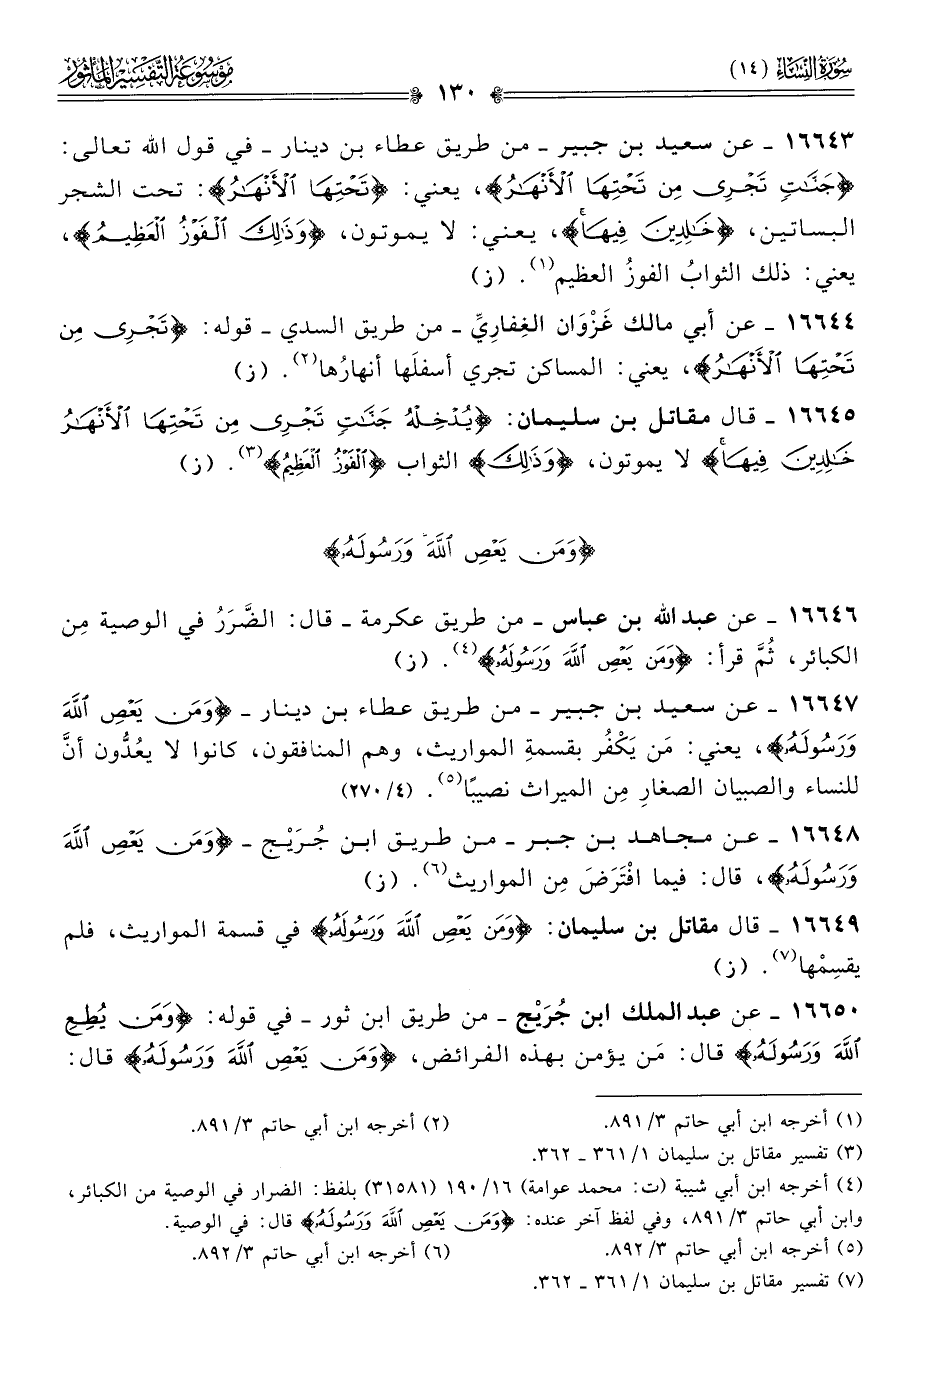 سورة النساء (١٤)
١٣٠
موسوعة التفسير المأثور
١٦٦٤٣ ـ عن سعيد بن جبير ـ من طريق عطاء بن دينار ـ في قول الله تعالى:
﴿جَنَّٰتٍ تَجْرِى مِن تَحْتِهَا ٱلْأَنْهَٰرُ﴾، يعني: ﴿تَحْتِهَا ٱلْأَنْهَٰرُ﴾: تحت الشجر
البساتين، ﴿خَٰلِدِينَ فِيهَاۚ﴾، يعني: لا يموتون، ﴿وَذَٰلِكَ ٱلْفَوْزُ ٱلْعَظِيمُ﴾،
يعني: ذلك الثوابُ الفوزُ العظيم(١). (ز)
١٦٦٤٤ ـ عن أبي مالك غَزْوَان الغِفاريِّ ـ من طريق السدي ـ قوله: ﴿تَجْرِى مِن
تَحْتِهَا ٱلْأَنْهَٰرُ﴾، يعني: المساكن تجري أسفلَها أنهارُها(٢). (ز)
١٦٦٤٥ ـ قال مقاتل بن سليمان: ﴿يُدْخِلْهُ جَنَّٰتٍ تَجْرِى مِن تَحْتِهَا ٱلْأَنْهَٰرُ
خَٰلِدِينَ فِيهَاۚ﴾ لا يموتون، ﴿وَذَٰلِكَ﴾ الثواب ﴿ٱلْفَوْزُ ٱلْعَظِيمُ﴾(٣). (ز)
﴿وَمَن يَعْصِ ٱللَّهَ وَرَسُولَهُۥ﴾
١٦٦٤٦ ـ عن عبد الله بن عباس ـ من طريق عكرمة ـ قال: الضَّرَرُ في الوصية مِن
الكبائر، ثُمَّ قرأ: ﴿وَمَن يَعْصِ ٱللَّهَ وَرَسُولَهُۥ﴾(٤). (ز)
١٦٦٤٧ ـ عن سعيد بن جبير ـ من طريق عطاء بن دينار ـ ﴿وَمَن يَعْصِ ٱللَّهَ
وَرَسُولَهُۥ﴾، يعني: مَن يَكْفُر بقسمةِ المواريث، وهم المنافقون، كانوا لا يعُدُّون أنَّ
للنساء والصبيان الصغارِ مِن الميراث نصيبًا(٥). (٤/ ٢٧٠)
١٦٦٤٨ ـ عن مجاهد بن جبر ـ من طريق ابن جُرَيْج ـ ﴿وَمَن يَعْصِ ٱللَّهَ
وَرَسُولَهُۥ﴾، قال: فيما افْتَرَضَ مِن المواريث(٦). (ز)
١٦٦٤٩ ـ قال مقاتل بن سليمان: ﴿وَمَن يَعْصِ ٱللَّهَ وَرَسُولَهُۥ﴾ في قسمة المواريث، فلم
يقسِمْها(٧). (ز)
١٦٦٥٠ ـ عن عبد الملك ابن جُرَيْج ـ من طريق ابن ثور ـ في قوله: ﴿وَمَن يُطِعِ
ٱللَّهَ وَرَسُولَهُۥ﴾ قال: مَن يؤمن بهذه الفرائض، ﴿وَمَن يَعْصِ ٱللَّهَ وَرَسُولَهُۥ﴾ قال:
(١) أخرجه ابن أبي حاتم ٣/ ٨٩١. (٢) أخرجه ابن أبي حاتم ٣/ ٨٩١.
(٣) تفسير مقاتل بن سليمان ١/ ٣٦١ ـ ٣٦٢.
(٤) أخرجه ابن أبي شيبة (ت: محمد عوامة) ١٦/ ١٩٠ (٣١٥٨١) بلفظ: الضرار في الوصية من الكبائر،
وابن أبي حاتم ٣/ ٨٩١، وفي لفظ آخر عنده: ﴿وَمَن يَعْصِ ٱللَّهَ وَرَسُولَهُۥ﴾ قال: في الوصية.
(٥) أخرجه ابن أبي حاتم ٣/ ٨٩٢. (٦) أخرجه ابن أبي حاتم ٣/ ٨٩٢.
(٧) تفسير مقاتل بن سليمان ١/ ٣٦١ ـ ٣٦٢.